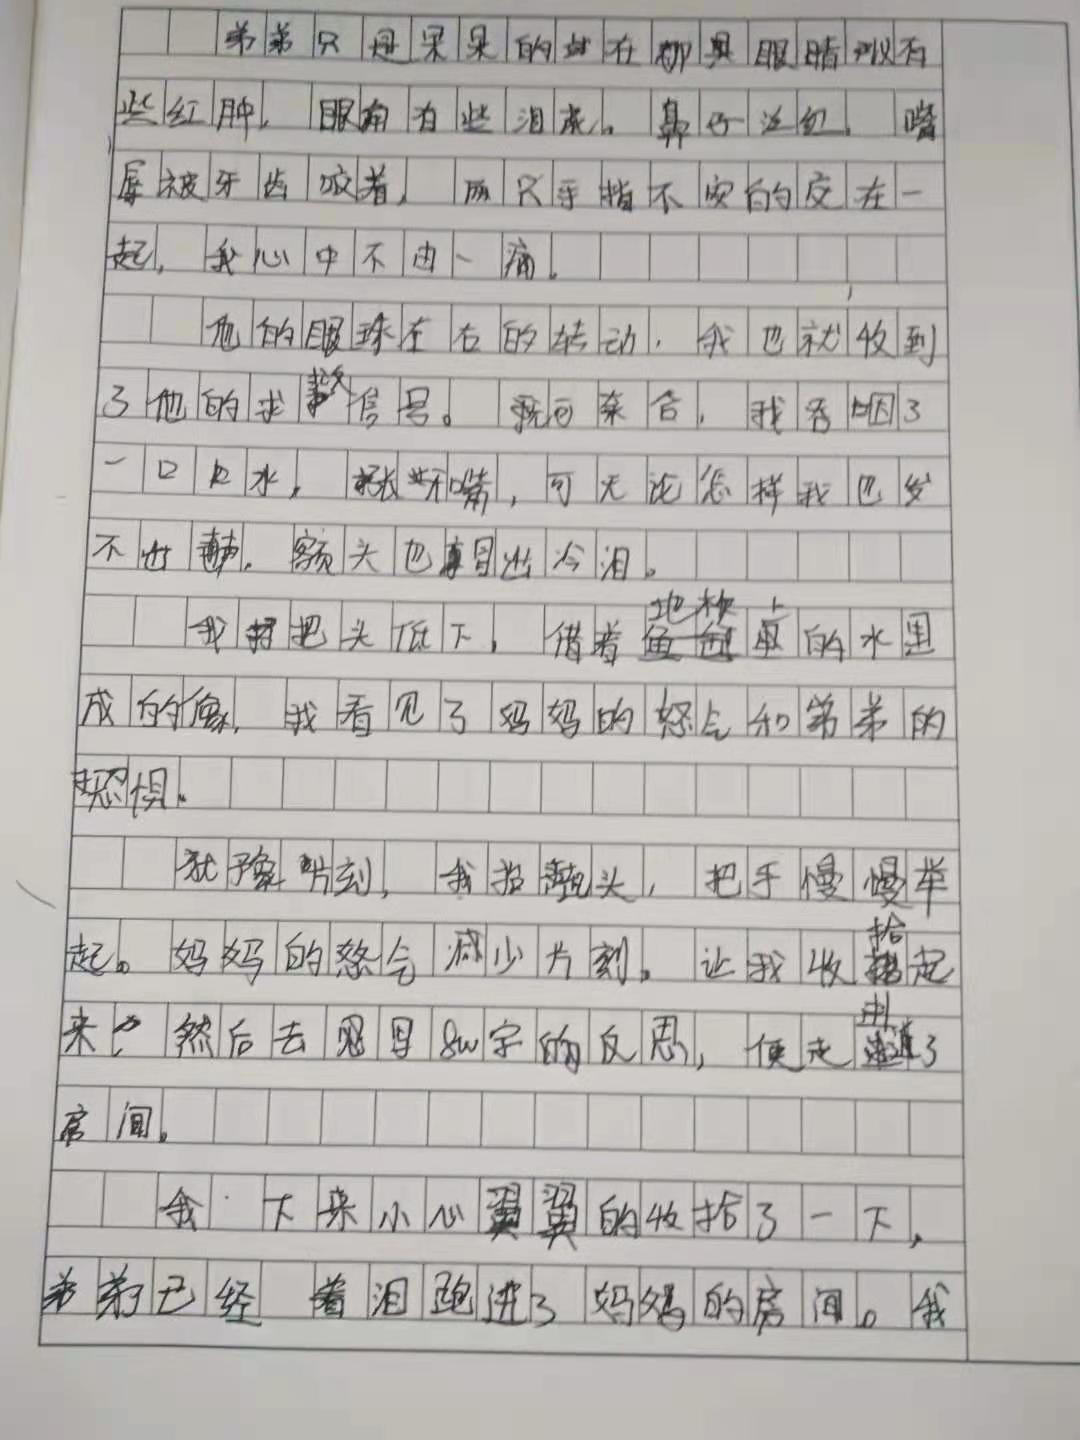 弟弟只是呆呆的站在那里眼睛以有
些红肿，眼角有些泪痕。鼻子泛红，嘴
唇被牙齿咬着，两只手指不安的交在一
起，我心中不由一痛。
他的眼球左右的转动，我也就收到
了他的求救信号。无可奈何，我吞咽了
一口口水，张张嘴，可无论怎样我也发
不出声，额头也冒出冷泪。
我把头低下，借着地板上的水里
成的像，我看见了妈妈的怒气和弟弟的
恐惧。
犹豫片刻，我抬头，把手慢慢举
起。妈妈的怒气减少片刻。让我收拾起
来，然后去写800字的反思，便走出了
房间。
我下来小心翼翼的收拾了一下，
弟弟已经着泪跑进了妈妈的房间。我